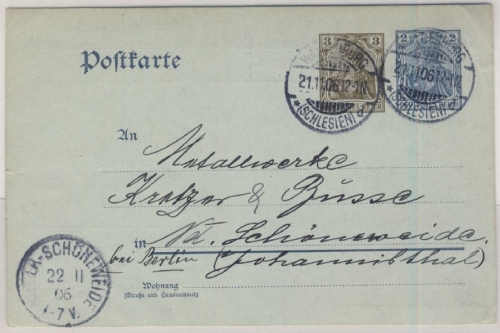 Postkarte
3 3
2 2
21.11.06.12-1N.
*(SCHLESIEN) d
21.11.06.12-1N.
*(SCHLESIEN) d
An
Metallwerke
Kretzer & Busse
in Nd. Schöneweide
bei Berlin (Johannisthal)
Wohnung
(Straße und Hausnummer)
NIEDER-SCHÖNEWEIDE
22 11
06
-7 V.